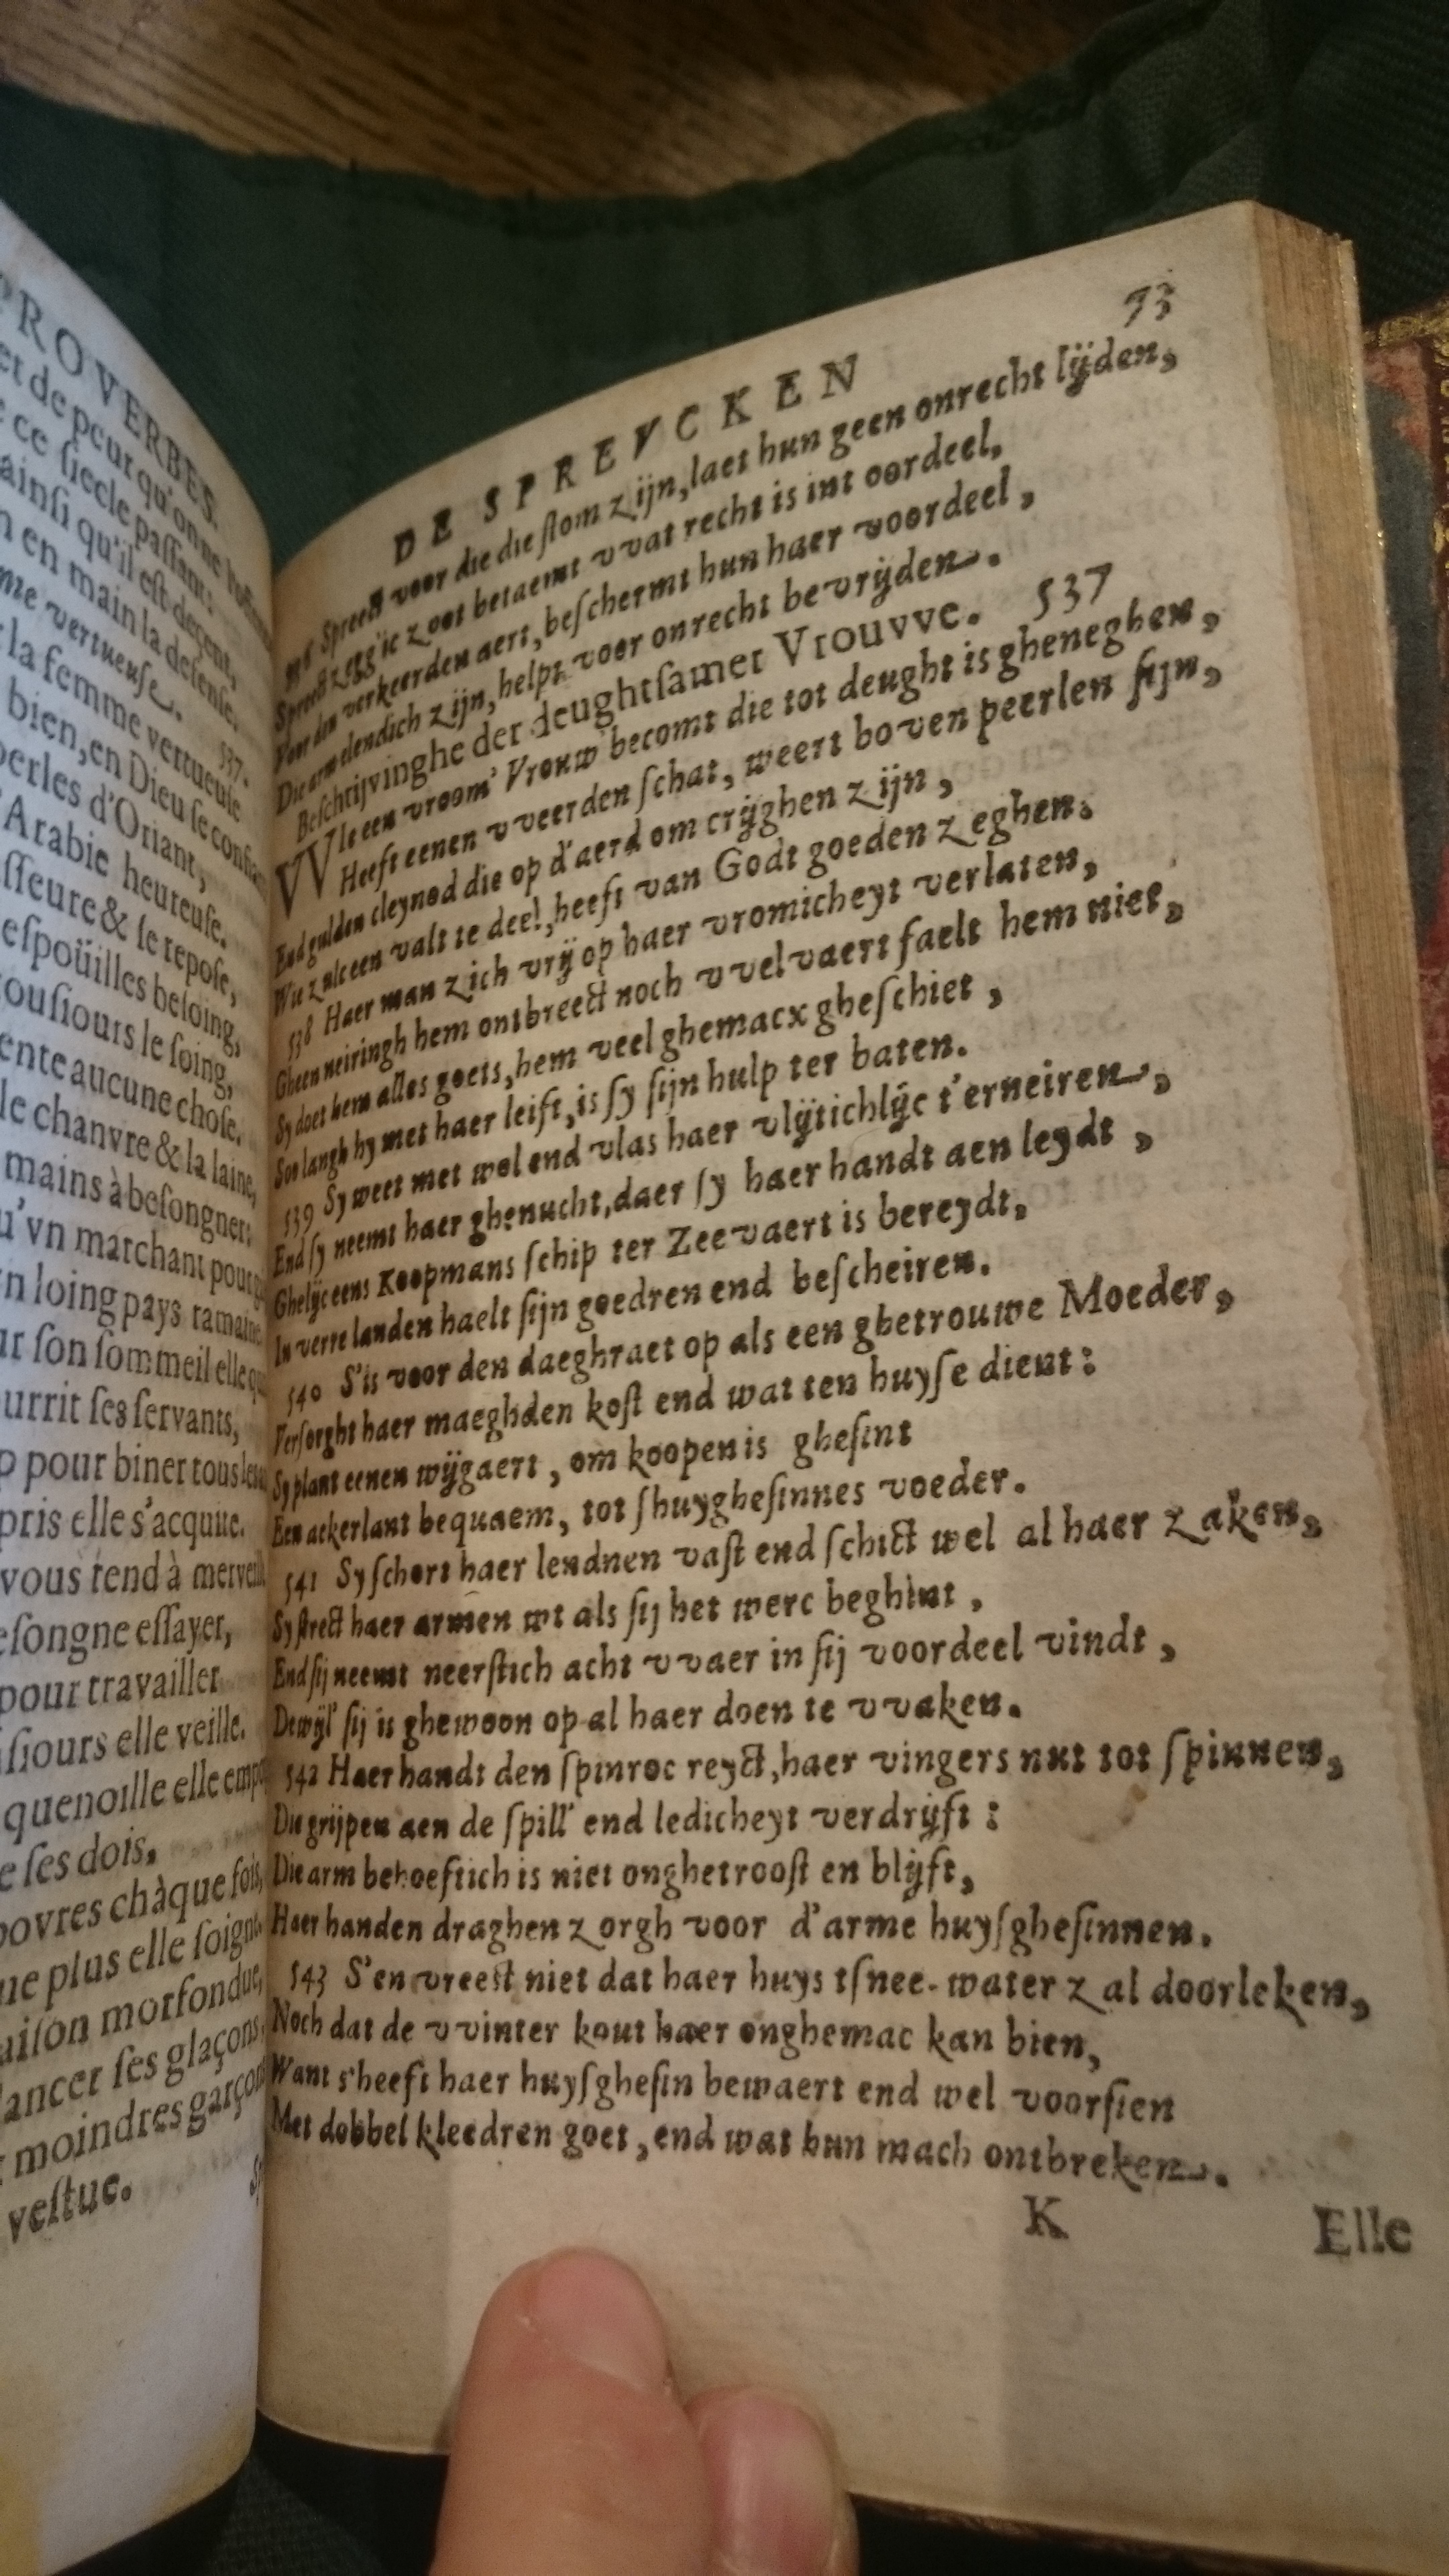 PROVERBES.
et de peur qu'on ne
ce siecle passant:
ainsi qu'il est decent,
en main la defense.
me vertueuse.
la femme vertueuse 537.
bien, en Dieu se
perles d'Oriant,
'Arabie heureuse.
sseure & se repose,
espoüilles besoing,
tousiours le soing,
ente aucune chose.
le chanvre & la laine,
mains à besongner:
u'vn marchant pour
n loing pays
ur son sommeil elle
urrit ses servants,
pour biner tous
pris elle s'acquite.
vous tend à
esongne essayer,
pour travailler
siours elle veille.
quenoille elle
e ses dois,
povres chàque fois,
ue plus elle
morfondue,
lancer ses glaçons,
moindres garçons
vestue.
73
DE SPREVCKEN
536 Spreect voor die die stom zijn, laet hun geen onrecht lijden,
Spreect zegg'ic zoot betaemt vvat recht is int oordeel,
Voor den verkeerden aert, beschermt hun haer voordeel,
Die arm elendich zijn, helpt voor onrecht bevrijden.
Beschrijvinghe der deughtsamer Vrouvve. 537
VVIe een vroom' Vrouw' becomt die tot deught is gheneghen,
Heeft eenen vveerden schat, weert boven peerlen sijn,
End gulden cleynod die op d'aerd om crijghen zijn,
Wie zulc een valt te deel, heeft van Godt goeden zeghen.
538 Haer man zich vrij op haer vromicheyt verlaten,
Gheen neiringh hem ontbreect noch vvelvaert faelt hem niet,
Sy doet hem alles goets, hem veel ghemacx gheschiet,
Soo langh hy met haer leift, is sy sijn hulp ter baten.
539 Sy weet met wol end vlas haer vlijtichlijc t'erneiren,
End sy neemt haer ghenucht, daer sy haer handt aen leydt,
Ghelijc eens Koopmans schip ter Zeevaert is bereydt,
In verre landen haelt sijn goedren end bescheiren.
540 S'is voor den daeghraet op als een ghetrouwe Moeder,
Versorght haer maeghden kost end wat ten huyse dient:
Sy plant eenen wijgaert, om koopen is ghesint
Een ackerlant bequaem, tot shuyghesinnes voeder.
541 Sy schort haer lendnen vast end schict wel al haer zaken,
Sy strect haer armen wt als sij het werc beghint,
End sij neemt neerstich acht vvaer in sij voordeel vindt,
Dewijl' sij is ghewoon op al haer doen te vvaken.
542 Haer handt den spinroc reyct, haer vingers nut tot spinnen,
Die grijpen aen de spill' end ledicheyt verdrijft:
Die arm behoeftich is niet onghetroost en blijft,
Haer handen draghen zorgh voor d'arme huysghesinnen.
543 S'en vreest niet dat haer huys tsnee-water zal doorleken,
Noch dat de vvinter kout haer onghemac kan bien,
Want s'heeft haer huysghesin bewaert end wel voorsien
Met dobbel kleedren goet, end wat hun mach ontbreken.
K
Elle